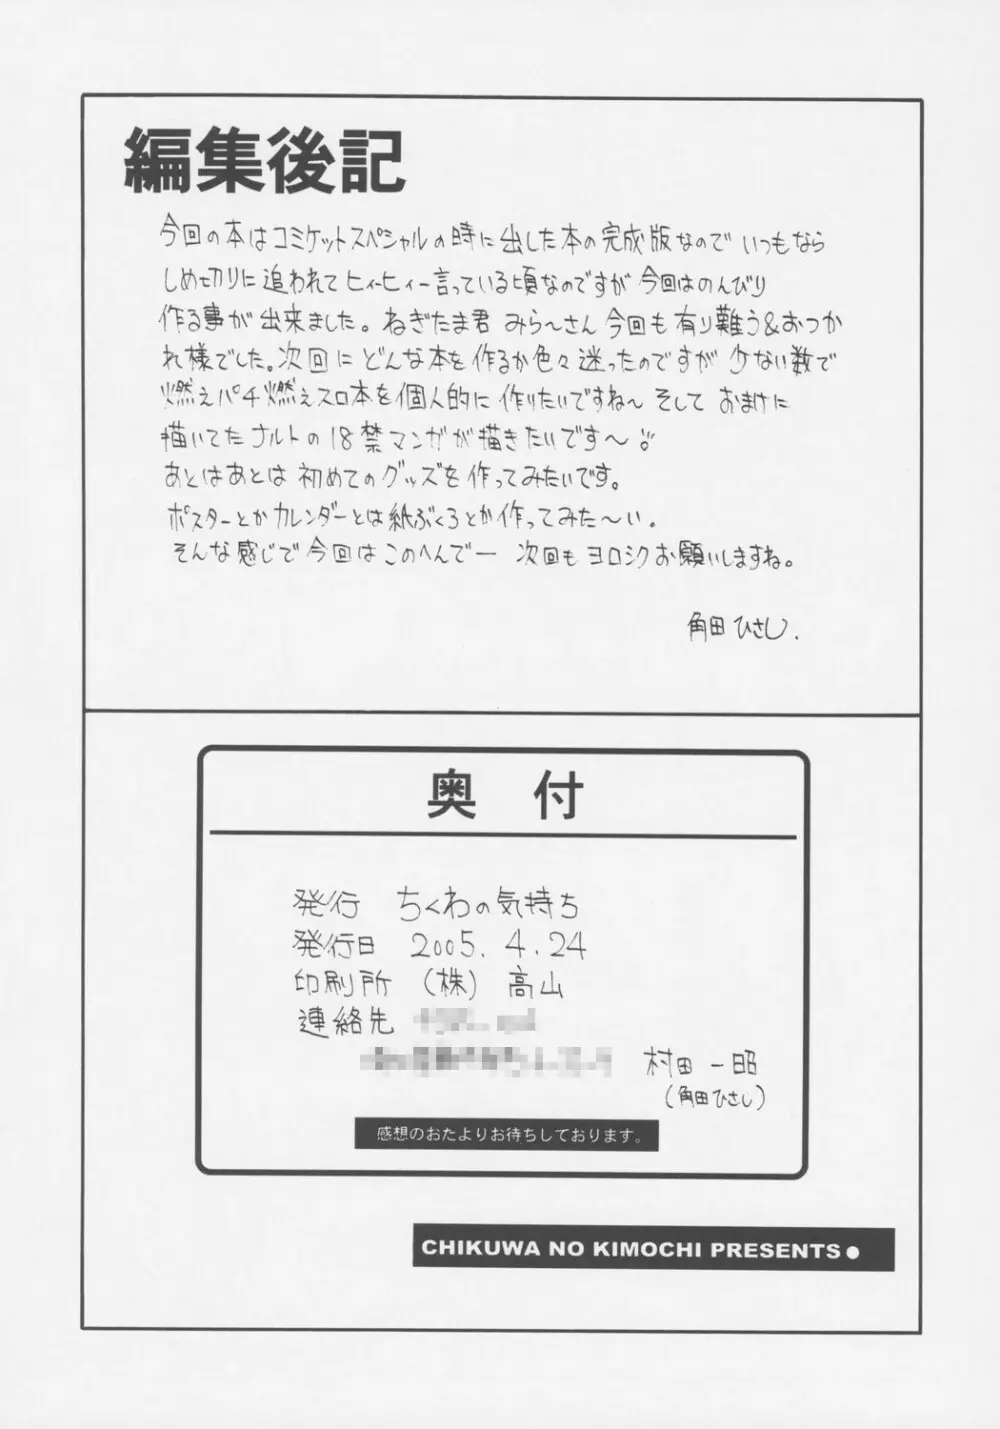 編集後記
今回の本はコミケットスペシャルの時に出した本の完成版なのでいつもなら
しめ切りに追われてヒィーヒィー言っている頃なのですが今回はのんびり
作る事が出来ました。ねぎたま君 みら〜さん今回も有り難う&おつか
れ様でした。次回にどんな本を作るか色々迷ったのですが少ない数で
燃えパチ燃えスロ本を個人的に作りたいですね〜そしておまけに
描いてたナルトの18禁マンガが描きたいです〜
あとはあとは初めてのグッズを作ってみたいです。
ポスターとかカレンダーとは紙ぶくろとか作ってみた〜い.
そんな感じで今回はこのへんでー 次回もヨロシクお願いしますね。
角田ひさし.
奥付
発行 ちくわの気持ち
発行日 2005.4.24
印刷所 (株)高山
連絡先
村田一昭
(角田ひさし)
感想のおたよりお待ちしております。
CHIKUWA NO KIMOCHI PRESENTS●